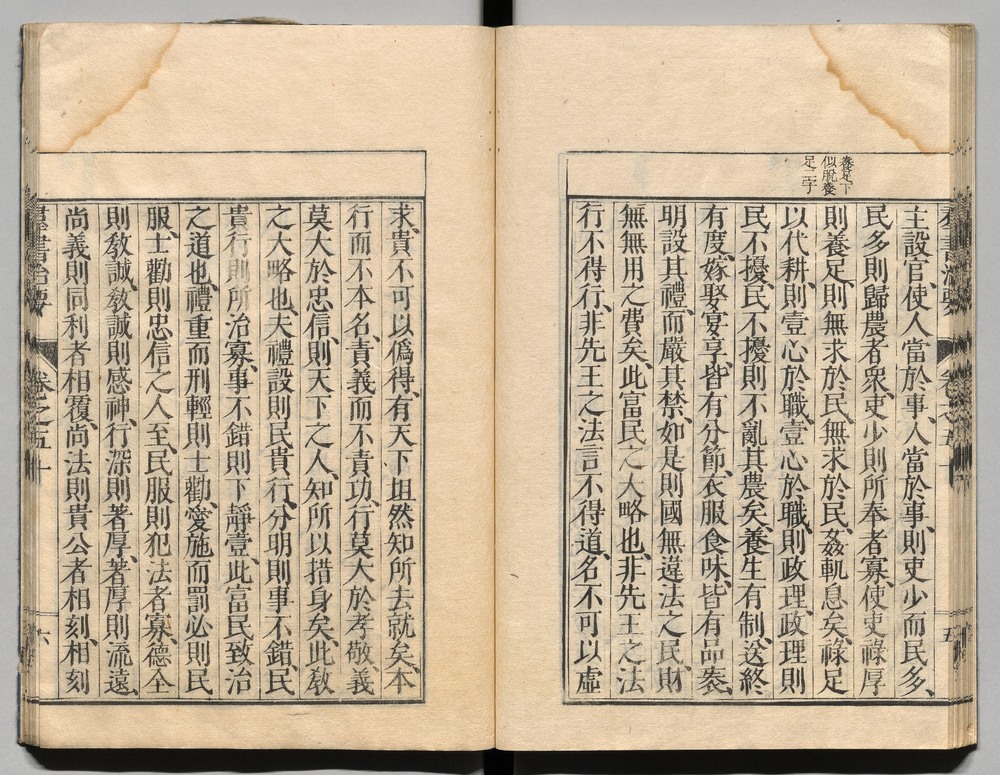 養足下
似脫養
足二字
主設官、使人當於事、人當於事、則吏少而民多、
民多則歸農者衆、吏少則所奉者寡、使吏祿厚
則養足、則無求於民、無求於民、姦軌息矣、祿足
以代耕、則壹心於職、壹心於職、則政理、政理則
民不擾、民不擾則不亂其農矣、養生有制、送終
有度、嫁娶宴享、皆有分節、衣服食味、皆有品袠、
明設其禮、而嚴其禁、如是則國無違法之民、財
無無用之費矣、此富民之大略也、非先王之法
行不得行、非先王之法言不得道、名不可以虛
求、貴不可以僞得、有天下坦然知所去就矣、本
行而不本名、責義而不責功、行莫大於孝敬、義
莫大於忠信、則天下之人、知所以措身矣、此敎
之大略也、夫禮設則民貴行、分明則事不錯、民
貴行則所治寡、事不錯則下靜壹、此富民致治
之道也、禮重而刑輕則士勸、愛施而罰必則民
服、士勸則忠信之人至、民服則犯法者寡、德全
則敎誠、敎誠則感神、行深則著厚、著厚則流遠、
尚義則同利者相覆、尚法則貴公者相刻、相刻
羣書治要 卷之五十 六